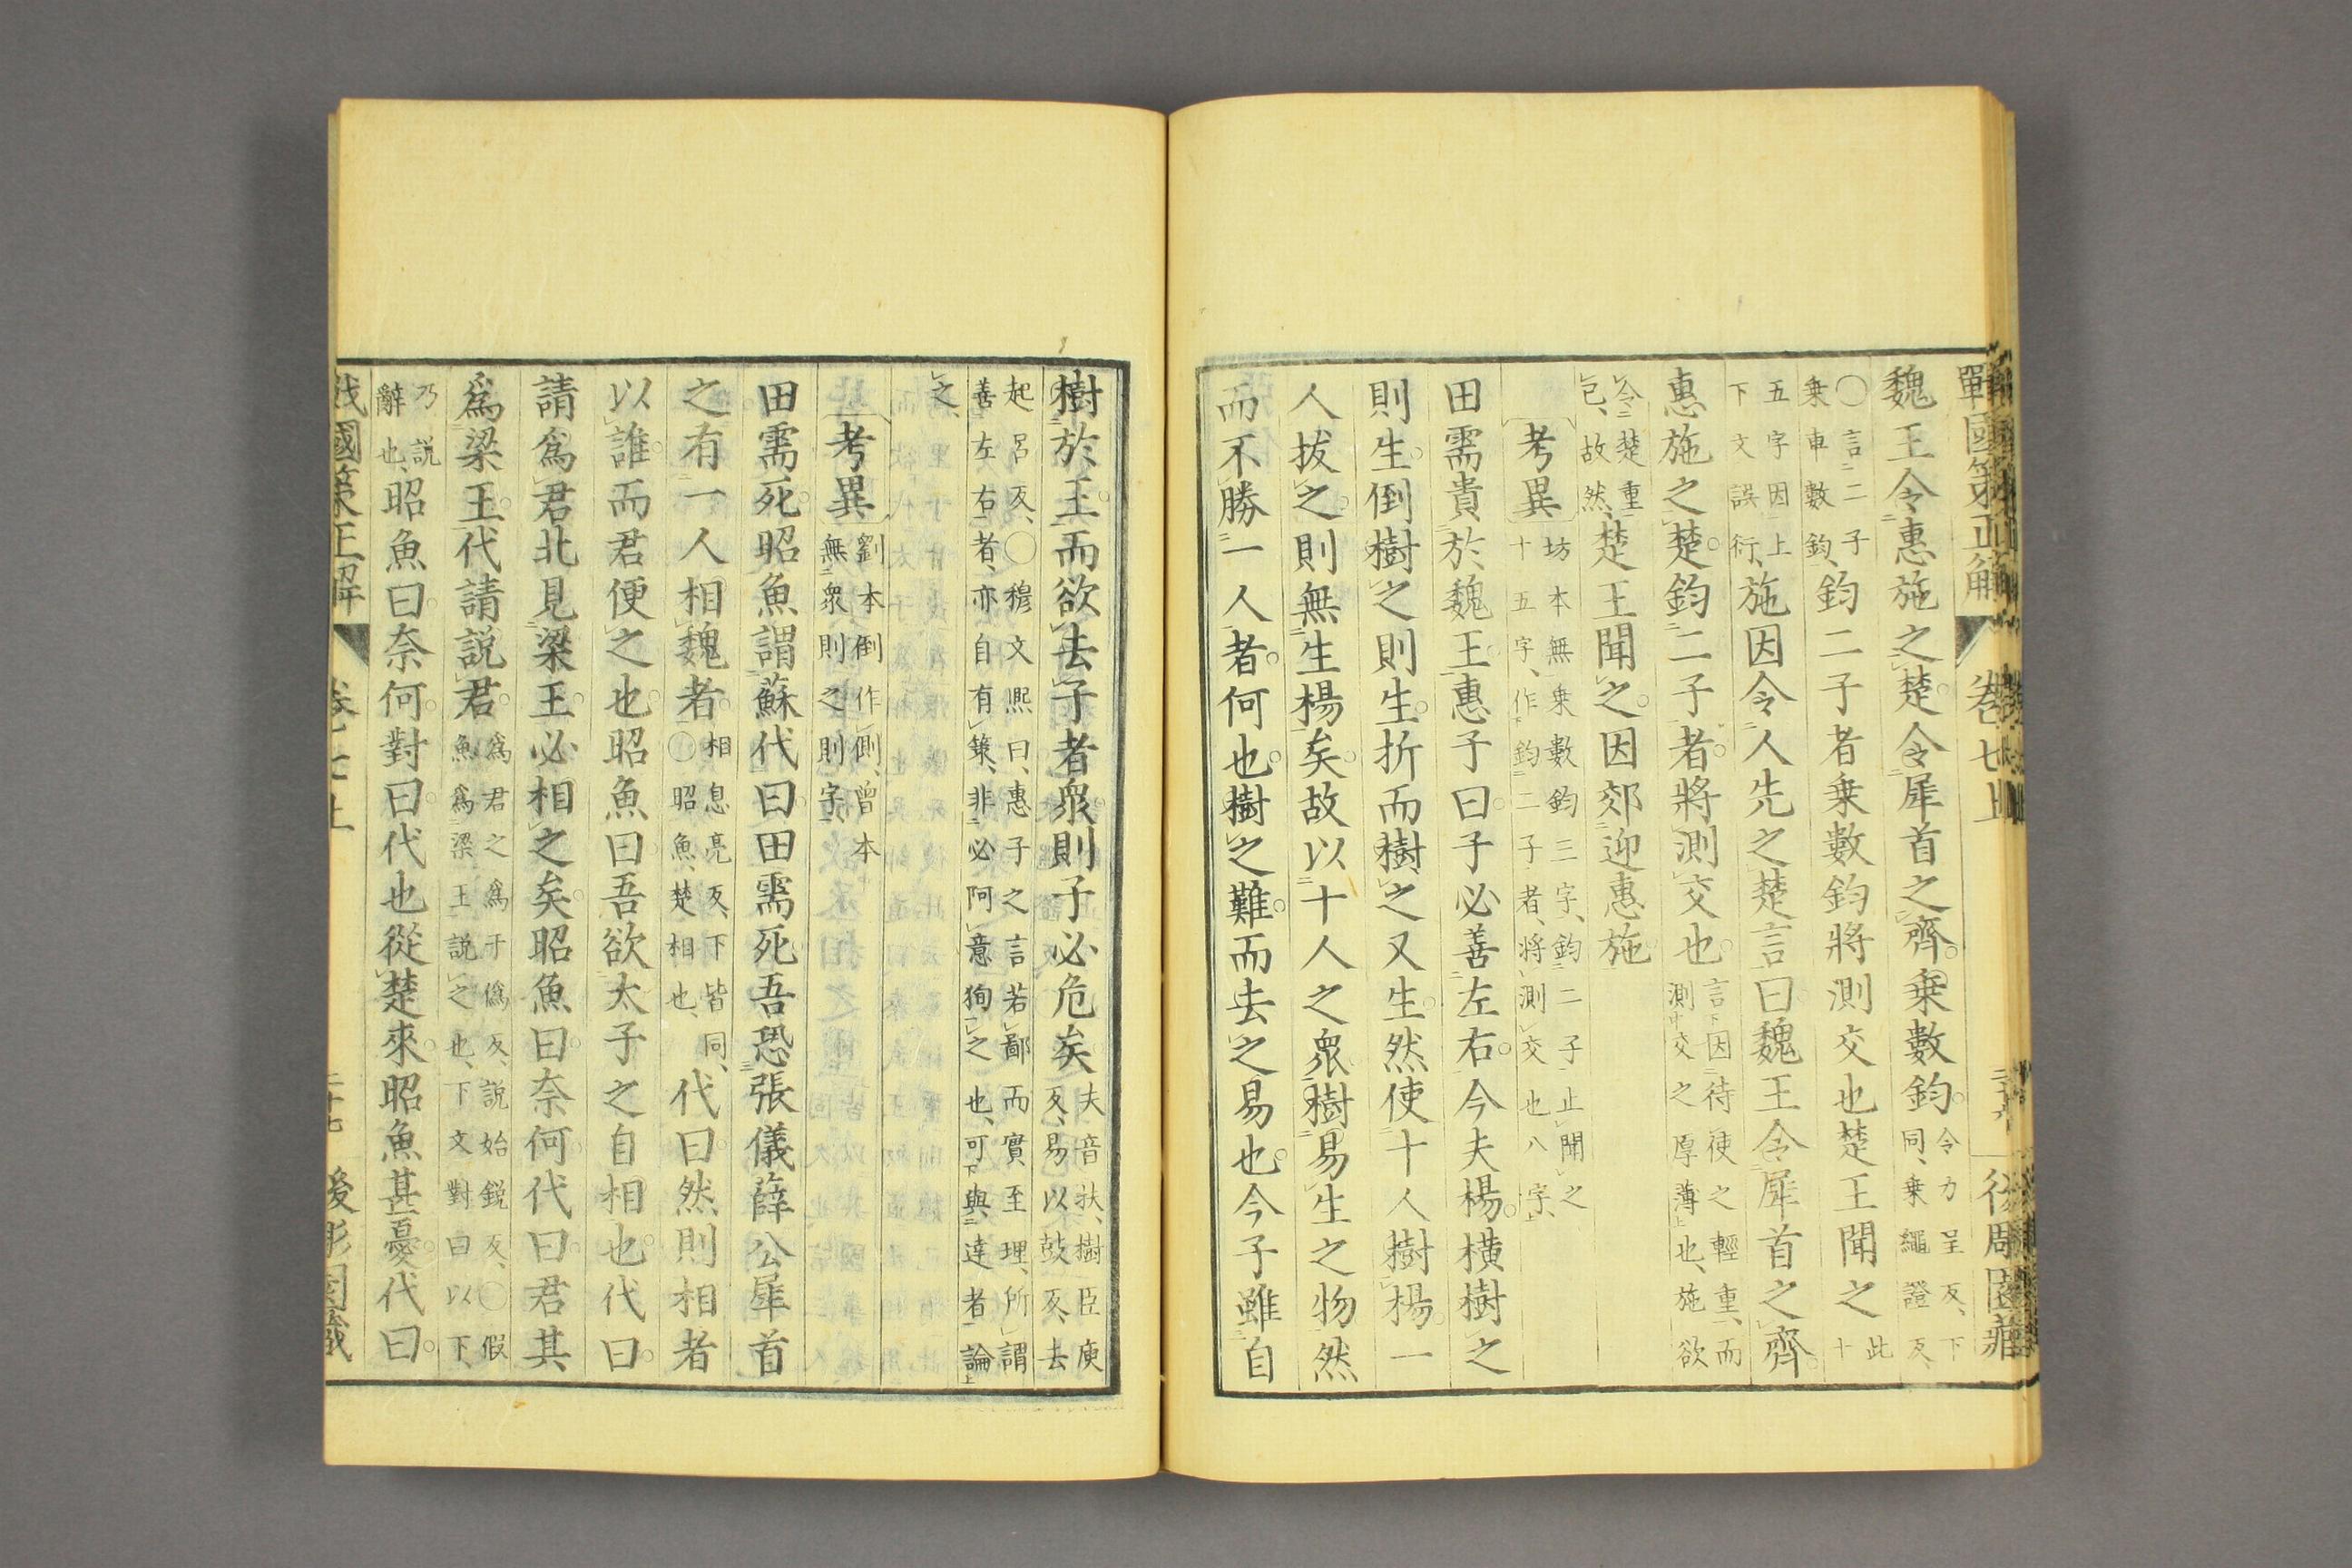 戰國策正解 卷七上 二十六
魏王令惠施之楚令犀首之齊乗數鈞令力呈反下同乗繩證反
○言二子乗車數鈞鈞二子者乗數鈞將測交也楚王聞之此十
五字因上下文誤衍施因令人先之楚言曰魏王令犀首之齊
惠施之楚鈞二子者將測交也言因待使之輕重而測交之厚薄也施欲
令楚重已故然楚王聞之因郊迎惠施
考異坊本無乗數鈞三字鈞二子止聞之十五字作鈞二子者將測交也八字
田需貴於魏王惠子曰子必善左右今夫楊橫樹之
則生倒樹之則生折而樹之又生然使十人樹楊一
人拔之則無生楊矣故以十人之衆樹易生之物然
而不勝一人者何也樹之難而去之易也今子雖自
樹於王而欲去子者衆則子必危矣夫音扶樹臣庾反易以鼓反去
起呂反○穆文熙曰惠子之言若鄙而實至理所謂善左右者亦自有策非必阿意狥之也可與達者論
之
考異劉本倒作側曾本無衆則之則字
田需死昭魚謂蘇代曰田需死吾恐張儀薛公犀首
之有一人相魏者相息亮反下皆同○昭魚楚相也代曰然則相者
以誰而君便之也昭魚曰吾欲太子之自相也代曰
請爲君北見梁王必相之矣昭魚曰奈何代曰君其
爲梁王代請説君爲君之爲于僞反説始鋭反○假魚爲梁王説之也下文對曰以下
乃説辭也昭魚曰奈何對曰代也從楚來昭魚甚憂代曰
戰國策正解 卷七上 二十七